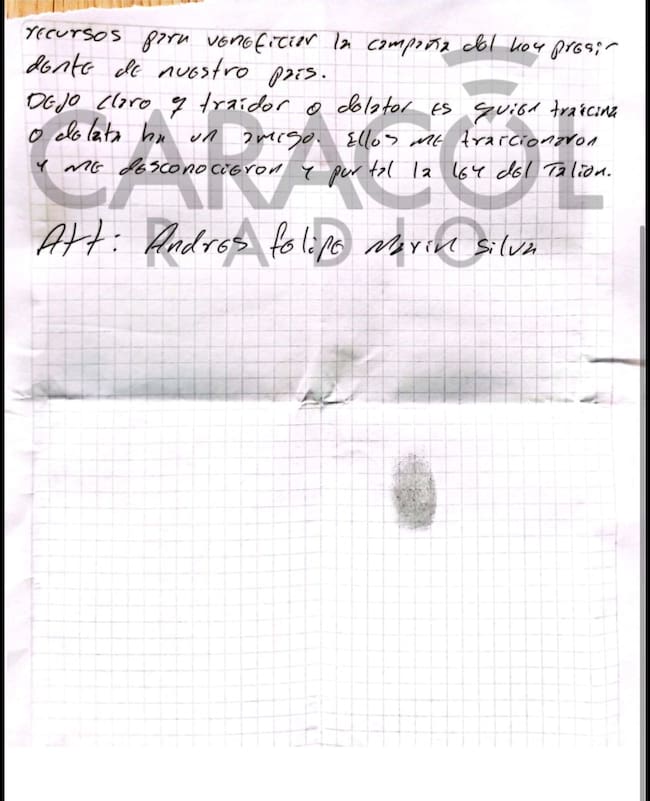 recursos para veneficiar la campaña del hoy presi-
dente de nuestro pais.
Dejo claro q traidor o delator es quien traiciona
o delata ha un amigo. Ellos me traicionaron
y me desconocieron y por tal la ley del Talion.
Att: Andres felipe Marin Silva
CARACOL
RADIO